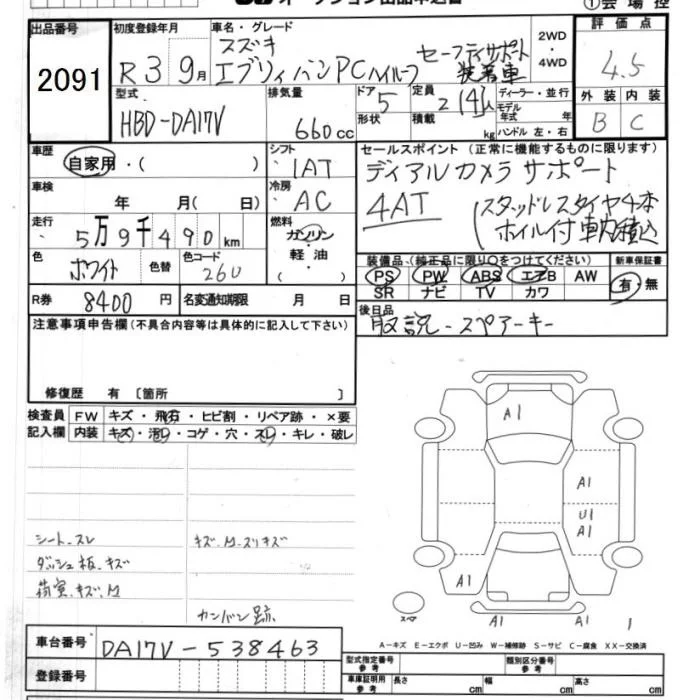 オークション出品申込書
①会場控
出品番号
2091
初度登録年月
R3 9月
車名・グレード
スズキ
エブリィバン PCハイルーフ
セーフティサポート
装着車
2WD
・
4WD
評価点
4.5
型式
HBD-DA17V
排気量
660cc
ドア
5
形状
定員
2(4)人
積載
kg
ディーラー・並行
モデル年式 年
ハンドル 左・右
外装 内装
B C
車歴
自家用・( )
シフト
IAT
セールスポイント (正常に機能するものに限ります)
ディアルカメラサポート
4AT
(スタッドレスタイヤ4本
ホイル付 車内積込
車検
年 月( 日)
冷房
AC
走行
5万9千490km
燃料
ガソリン・
軽油・
( )
色
ホワイト
色替
色コード
26U
装備品 (純正品に限り○をつけてください)
PS PW ABS エアB AW
SR ナビ TV カワ
新車保証書
有・無
R券
8400円
名変通知期限 月 日
後日品
取説-スペアーキー
注意事項申告欄 (不具合内容等は具体的に記入して下さい)
修復歴 有 〔箇所 〕
検査員
記入欄
FW キズ・飛石・ヒビ割・リペア跡・×要
内装 キズ・汚レ・コゲ・穴・スレ・キレ・破レ
シート.スレ
ダッシュ板.キズ
荷室.キズ.M
キズ.M.スリキズ
カンバン跡
A1
A1
U1
A1
A1
A1
A1
スペア
1
A-キズ E-エクボ U-凹み W-補修跡 S-サビ C-腐食 XX-交換済
車台番号
DA17V-538463
登録番号
型式指定番号
参考
類別区分番号
参考
車庫証明用
参考
長さ cm 幅 cm 高さ cm